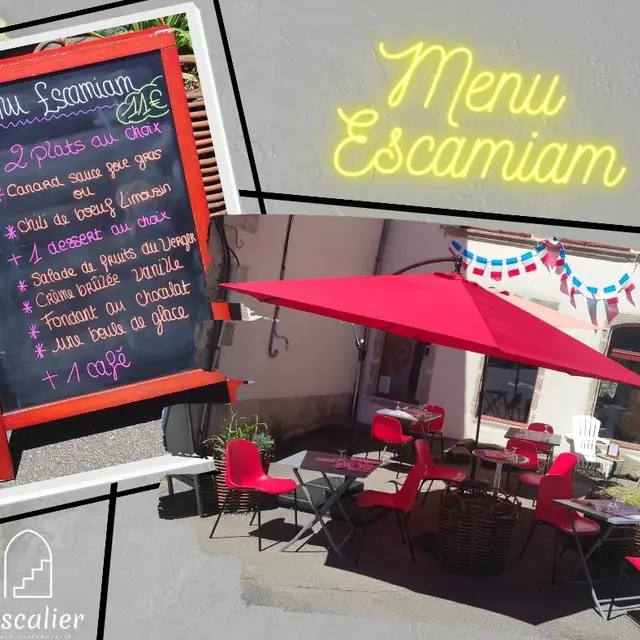 nu Escamiam
11€
2 plats au choix
* Canard sauce foie gras
ou
* Chili de bœuf Limousin
+ 1 dessert au choix
* Salade de fruits du Verger
* Crème brûlée vanille
* Fondant au chocolat
* une boule de glace
+ 1 café
Menu
Escamiam
scalier